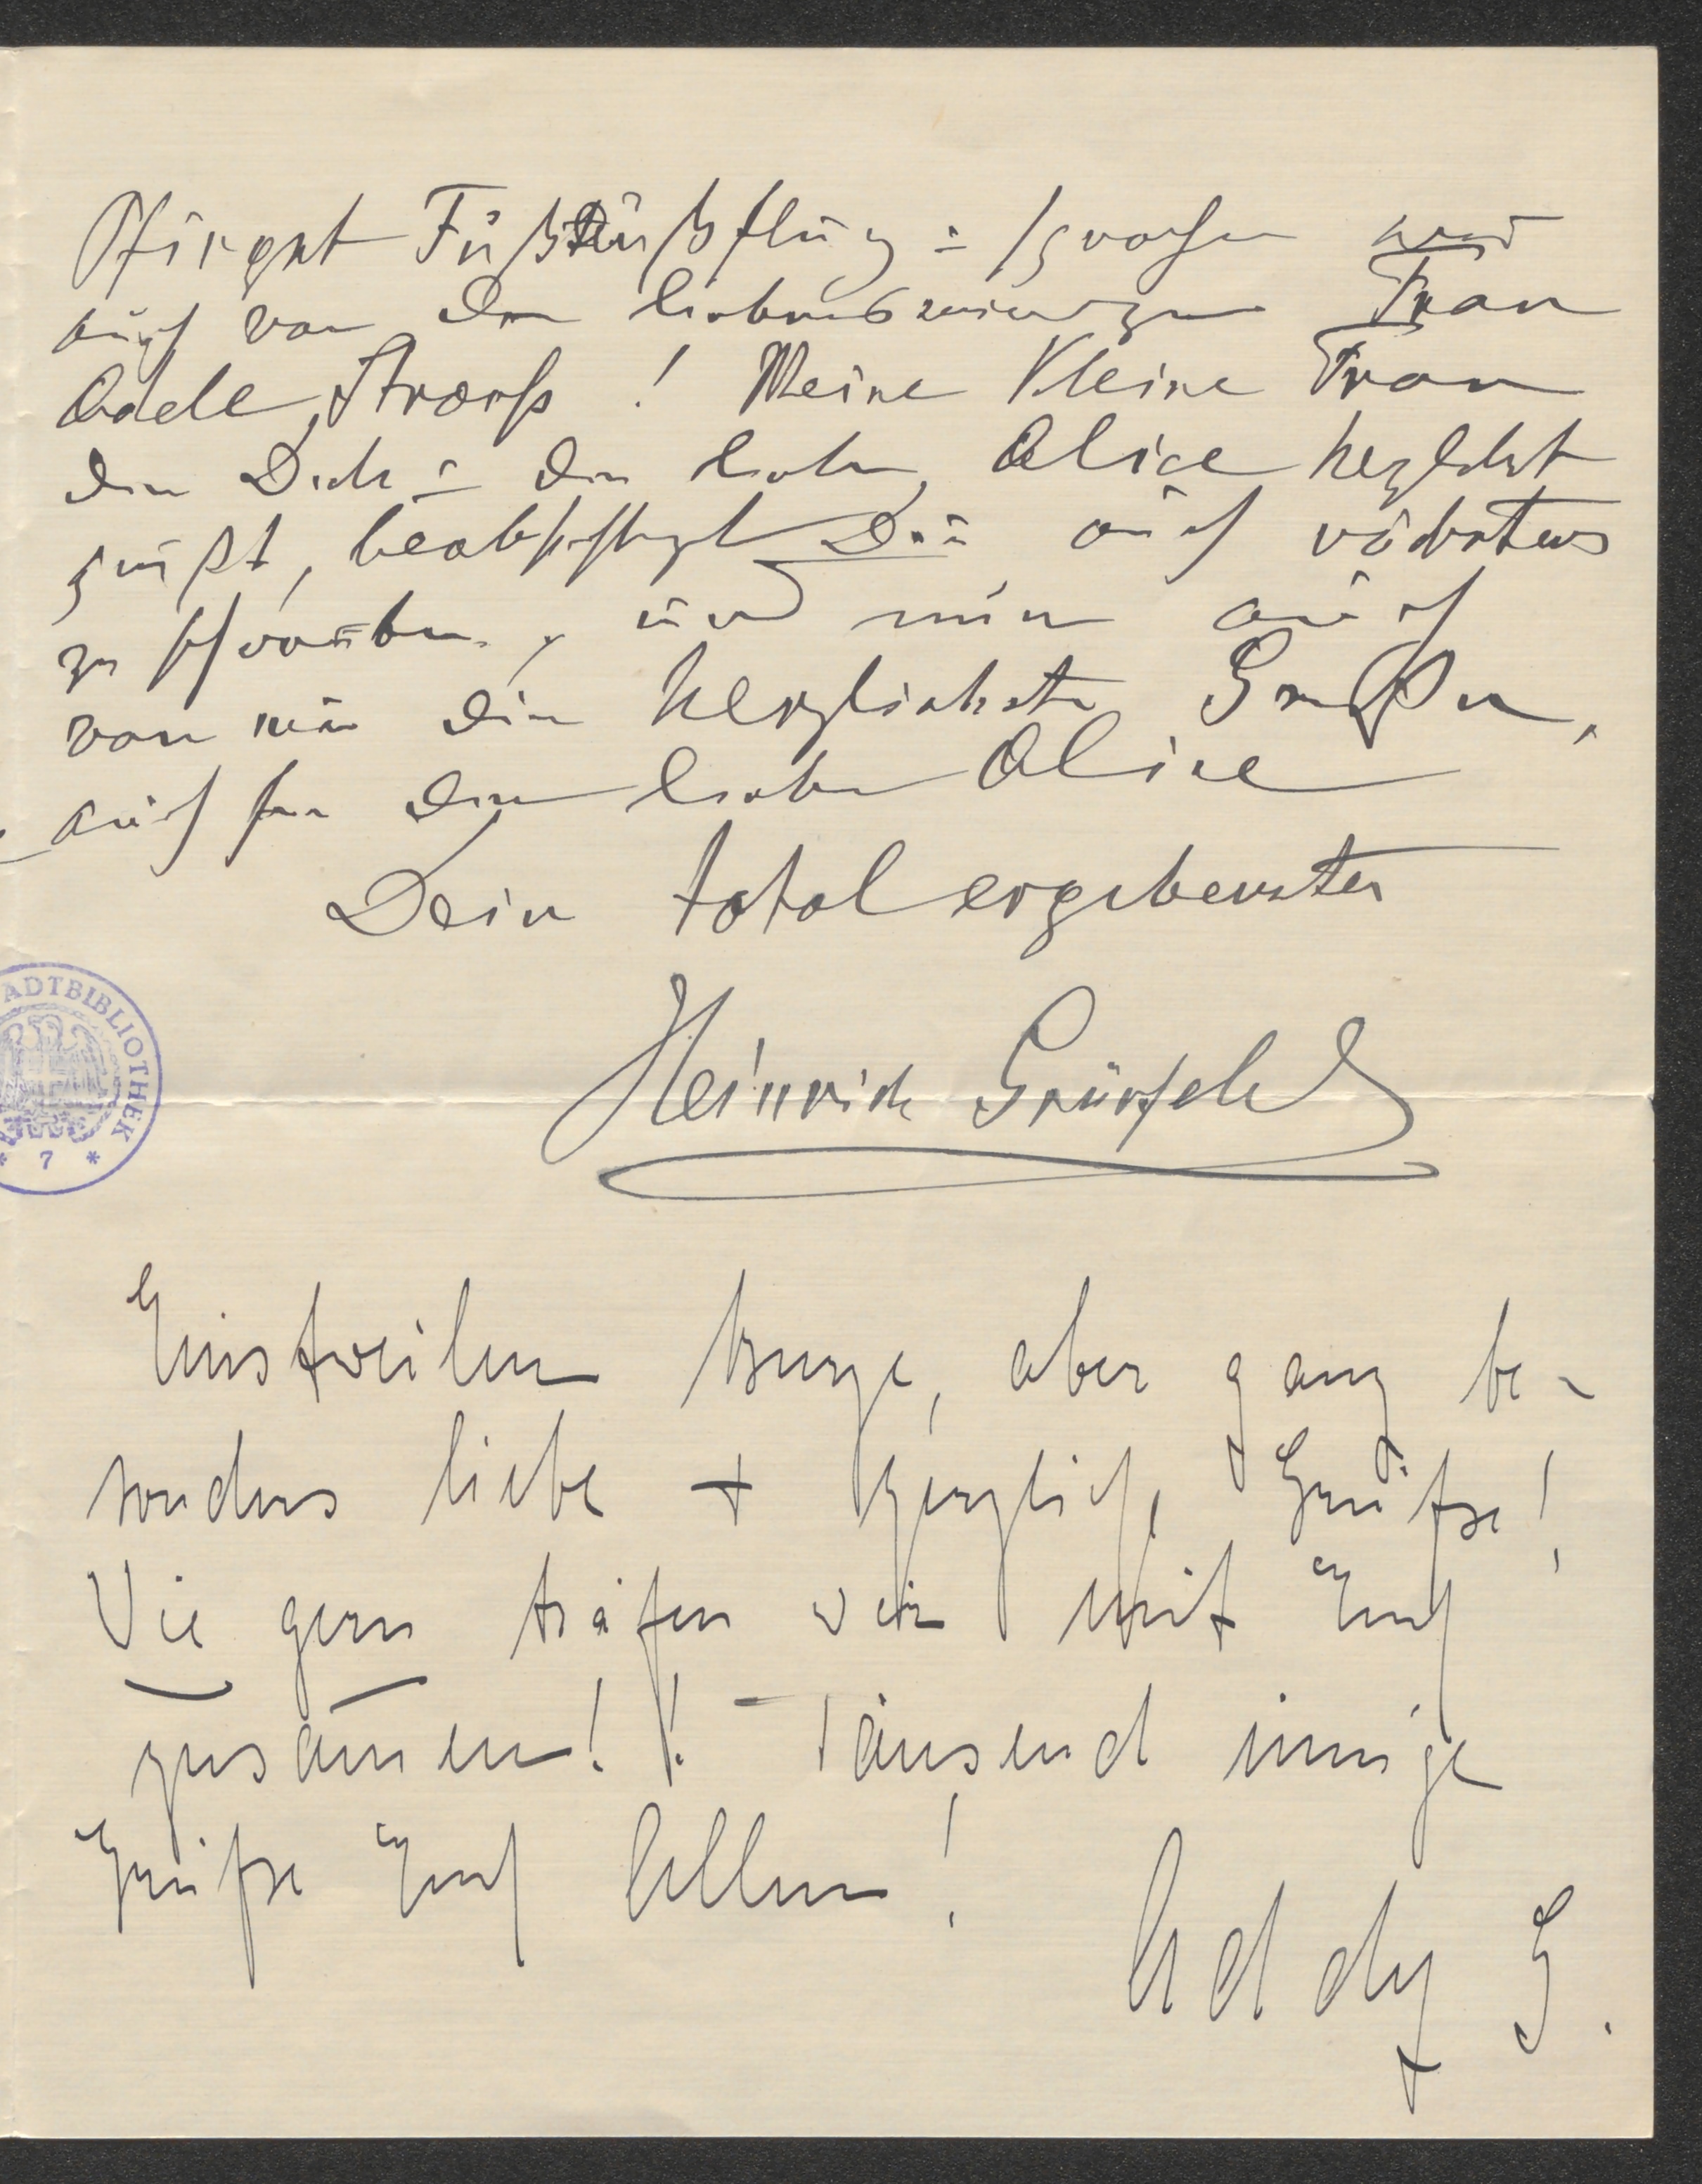 Pfingst Fuß Ausflug = sprachen wir
auch von der liebenswürdigen Frau
Adele Strauss! Meine Kleine Frau
die Dich u die liebe Alice herzlichst
grüßt, beabsichtigt Dir auch nächstens
zu schreiben, und nun auch
von mir die herzlichsten Grüße,
auch für die liebe Alice
Dein total ergebenster
Heinrich Grünfeld
STADTBIBLIOTHEK
* 7 *
Einstweilen kurze, aber ganz be-
sonders liebe + herzliche Grüße!
Wie gern träfen wir mit Euch
zusam̅en!! – Tausend innige
Grüße Euch Allen!
Addy G.